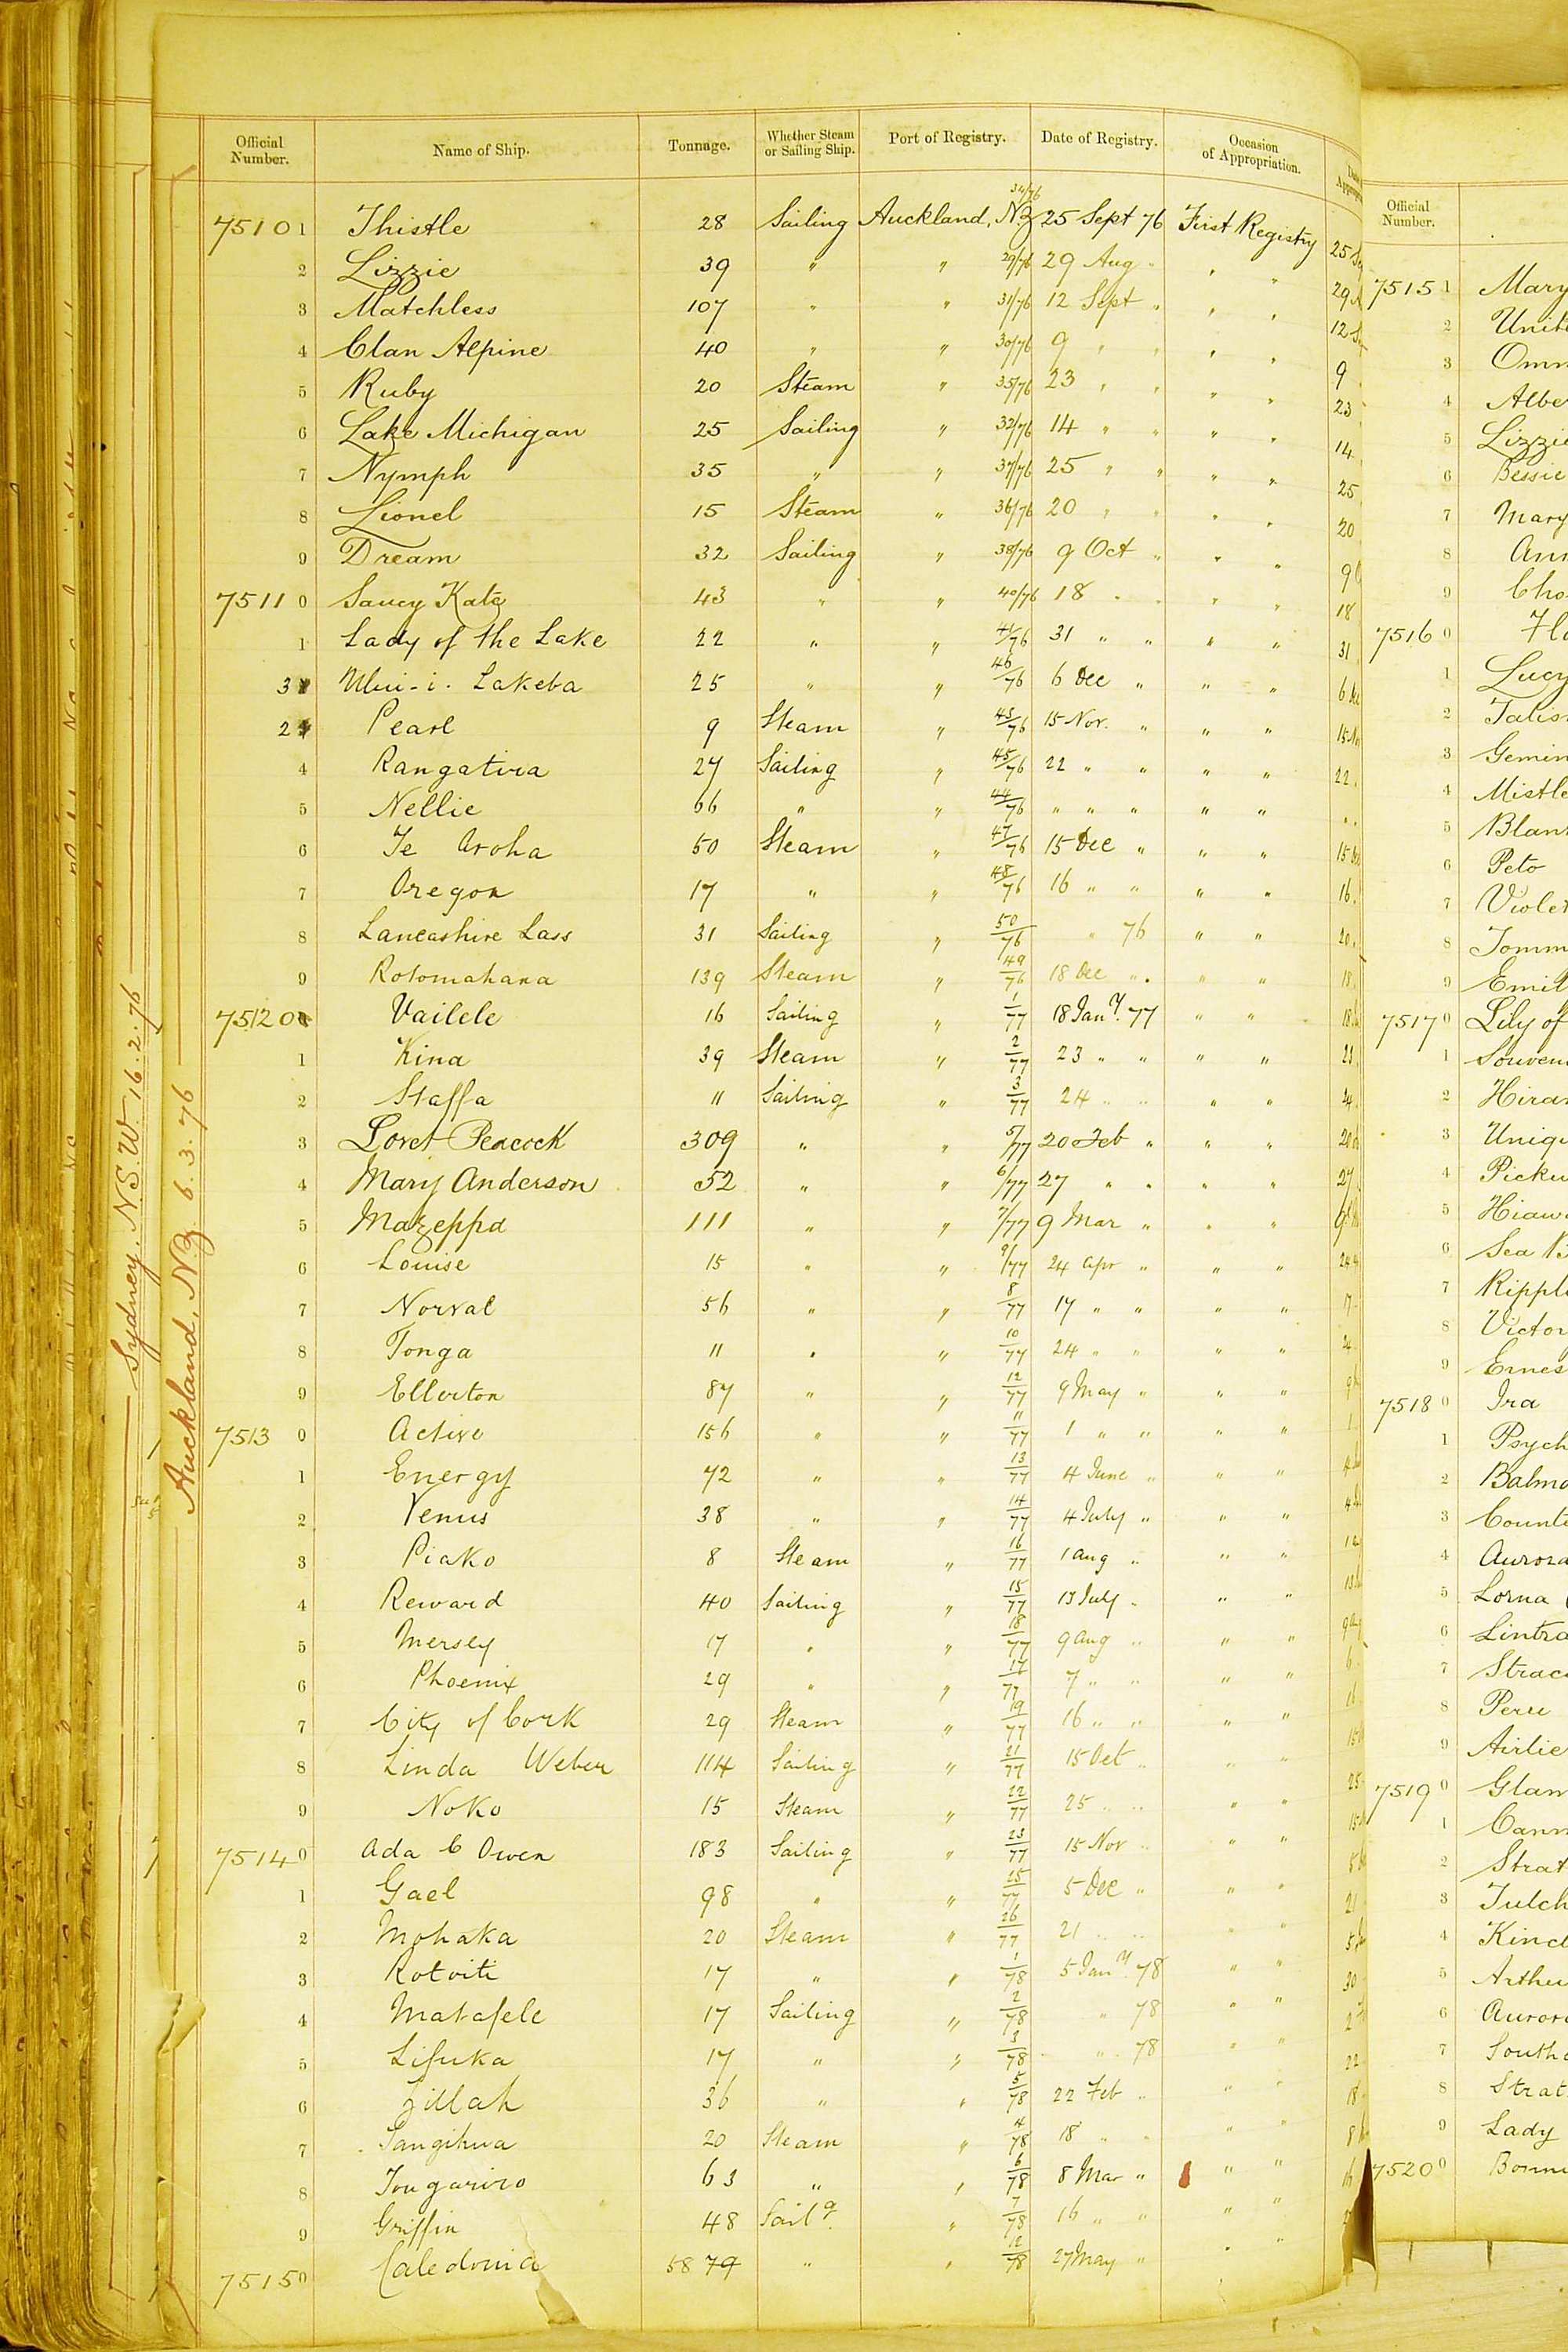 Official Number. Name of Ship. Tonnage. Whether Steam or Sailing Ship. Port of Registry. Date of Registry. Occasion of Appropriation.
75101 Thistle 28 Sailing Auckland, N.Z 34/76 25 Sept 76 First Registry 25
2 Lizzie 39 " " 29/76 29 Aug " " " 29
3 Matchless 107 " " 31/76 12 Sept " " " 12
4 Clan Alpine 40 " " 30/76 9 " " " " 9
5 Ruby 20 Steam " 35/76 23 " " " " 23
6 Lake Michigan 25 Sailing " 32/76 14 " " " " 14
7 Nymph 35 " " 37/76 25 " " " " 25
8 Lionel 15 Steam " 36/76 20 " " " " 20
9 Dream 32 Sailing " 38/76 9 Oct " " " 9
75110 Saucy Kate 43 " " 40/76 18 " " " " 18
1 Lady of the Lake 22 " " 41/76 31 " " " " 31
3 Lakeba 25 " " 46/76 6 Dec " " " 6
2 Pearl 9 Steam " 43/76 15 Nov. " " " 15
4 Rangatira 27 Sailing " 45/76 22 " " " " 22
5 Nellie 66 " " 44/76 " " " " "
6 Te Aroha 50 Steam " 47/76 15 Dec " " " 15
7 Oregon 17 " " 48/76 16 " " " " 16
8 Lancashire Lass 31 Sailing " 50/76 " 76 " " 20
9 Rotomahana 139 Steam " 49/76 18 Dec " " " 18
75120 Vailele 16 Sailing " 1/77 18 Jany. 77 " " 18
1 Kina 39 Steam " 2/77 23 " " " " 23
2 Staffa 11 Sailing " 3/77 24 " " " " 24
3 Loret Peacock 309 " " 5/77 20 Feb " " " 20
4 Mary Anderson 52 " " 6/77 27 " " " " 27
5 Mazeppa 111 " " 7/77 9 Mar " " " 9
6 Louise 15 " " 9/77 24 Apr " " " 24
7 Norval 56 " " 8/77 17 " " " " 17
8 Tonga 11 " " 10/77 24 " " " " 24
9 Ellerton 87 " " 12/77 9 May " " " 9
75130 Active 156 " " 11/77 1 " " " " 1
1 Energy 72 " " 13/77 4 June " " " 4
2 Venus 38 " " 14/77 4 July " " " 4
3 Piako 8 Steam " 16/77 1 Aug " " " 1
4 Reward 40 Sailing " 15/77 13 July " " " 13
5 Mersey 17 " " 18/77 9 Aug " " " 9
6 Phoenix 29 " " 17/77 7 " " " "
7 City of Cork 29 Steam " 19/77 16 " " " " 16
8 Linda Weber 114 Sailing " 21/77 15 Oct " " " 15
9 Noko 15 Steam " 22/77 25 " " " " 25
75140 Ada C Owen 183 Sailing " 23/77 15 Nov " " " 15
1 Gael 98 " " 25/77 5 Dec " " " 5
2 Mohaka 20 Steam " 26/77 21 " " " " 21
3 Rotoiti 17 " " 1/78 5 Jany. 78 " " 5
4 Matafele 17 Sailing " 2/78 " 78 " " 30
5 Lifuka 17 " " 3/78 " 78 " "
6 Zillah 36 " " 5/78 22 Feb " " " 22
7 Tangihua 20 Steam " 4/78 18 " " " " 18
8 Tongariro 63 " " 6/78 8 Mar " " " 8
9 Griffin 48 Sailg. " 7/78 16 " " " " 16
75150 Caledonia 58 79 " " 12/78 27 May " " "
Sydney. N.S.W. 16.2.76
Auckland, N.Z. 6.3.76
Official Number.
75151 Mary
2
3
4
5 Lizzie
6 Bessie
7 Mary
8
9
75160
1 Lucy
2
3
4
5
6 Peto
7 Violet
8
9
75170 Lily of
1
2
3
4
5
6 Sea
7
8
9
75180 Ira
1
2
3
4 Aurora
5 Lorna
6
7
8 Peru
9 Airlie
75190
1
2
3
4
5
6
7
8
9 Lady
75200